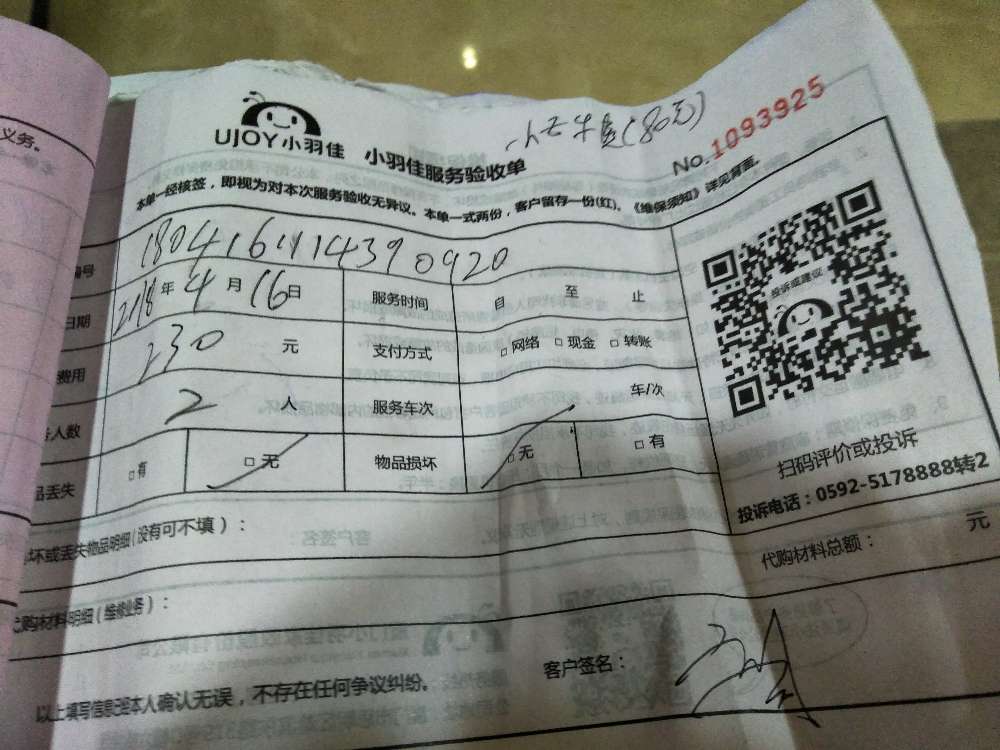 义务。
UJOY 小羽佳 小羽佳服务验收单
(80元)
No.1093925
本单一经核签，即视为对本次服务验收无异议。本单一式两份，客户留存一份(红)。《维保须知》详见背面。
编号 1804161114390920
日期 2018年4月16日 服务时间 自 至 止
费用 230 元 支付方式 □网络 □现金 □转账
人数 2 人 服务车次 车/次
品丢失 □有 □无 物品损坏 □无 □有
坏或丢失物品明细(没有可不填)：
投诉或建议
扫码评价或投诉
投诉电话：0592-5178888转2
代购材料总额： 元
代购材料明细(维修业务)：
客户签名：
以上填写信息经本人确认无误，不存在任何争议纠纷。